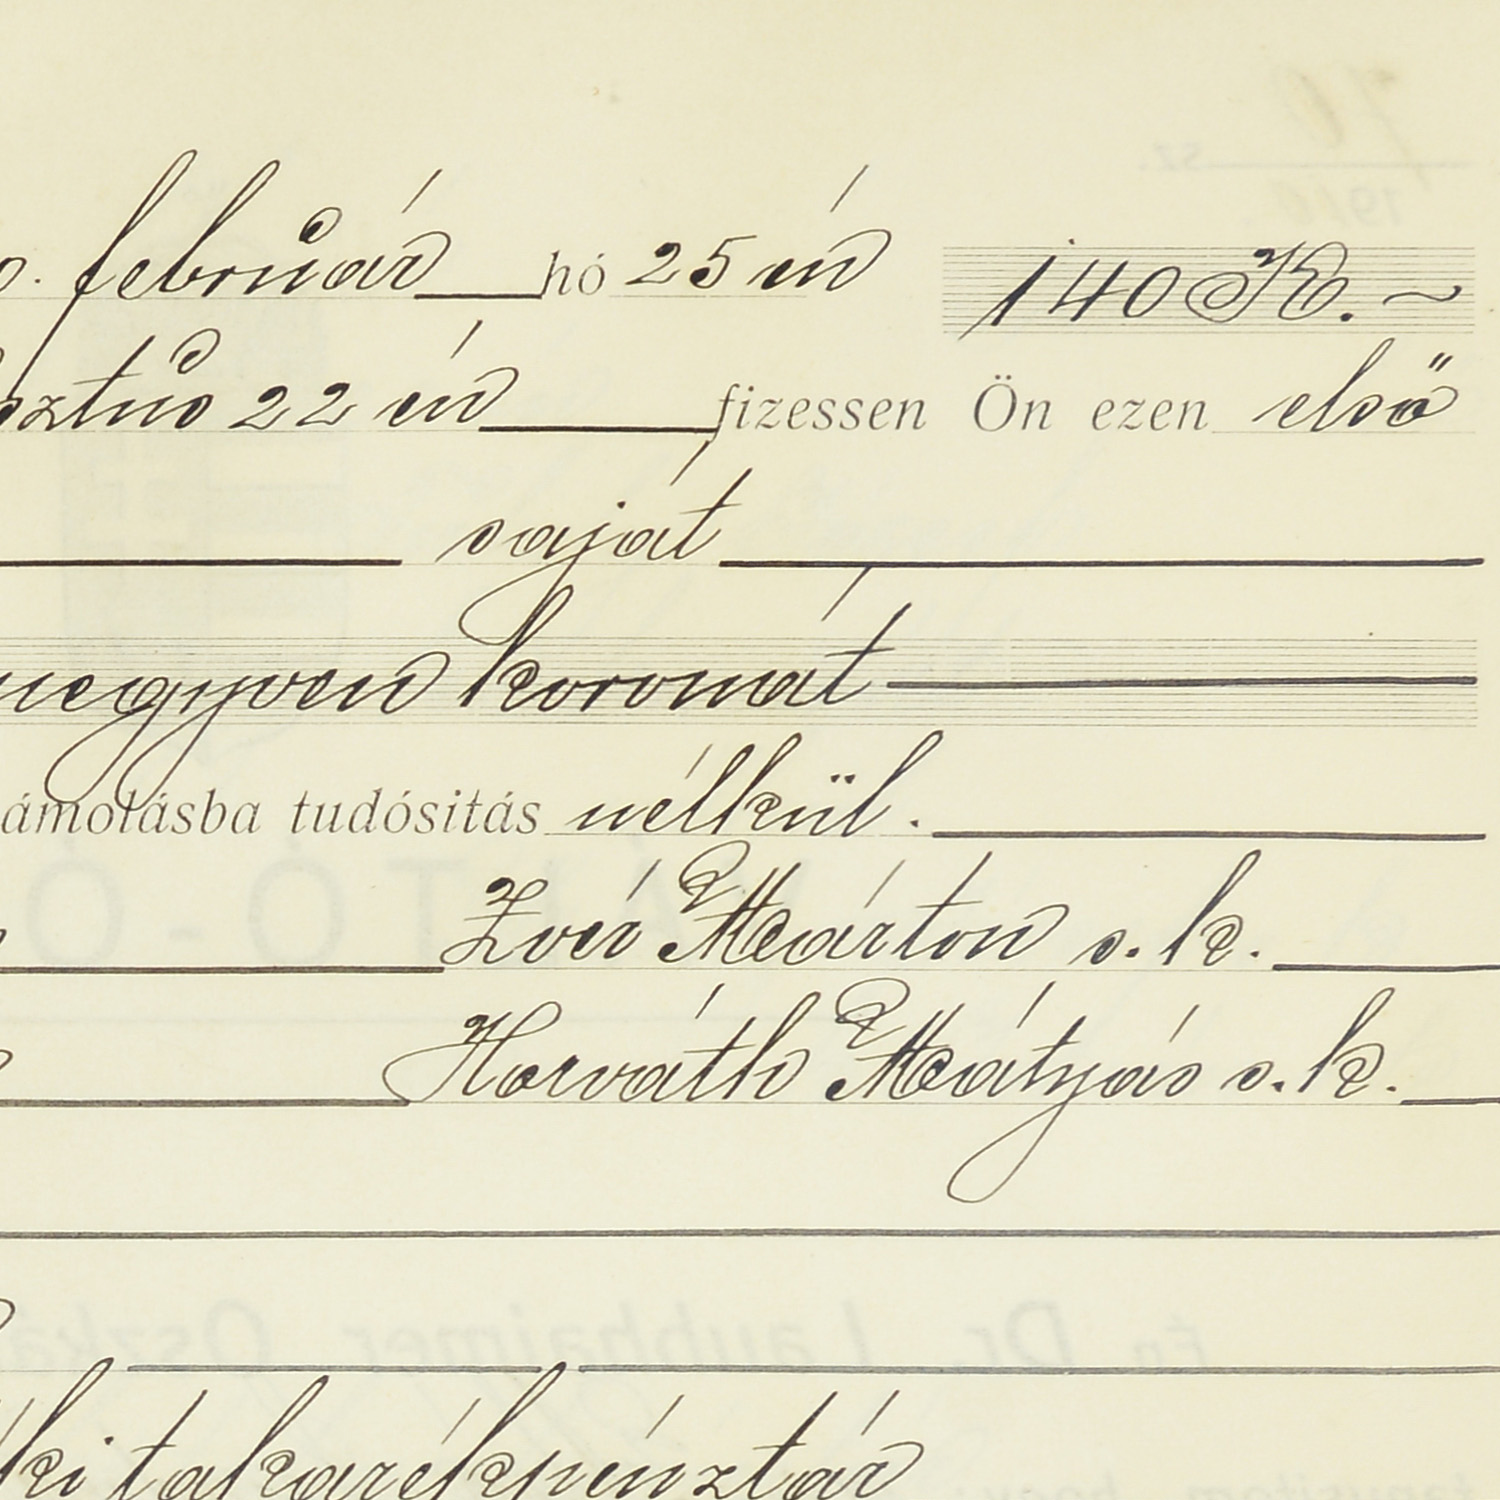 0. február hó 25 én 140 K. ~
osztus 22 én fizessen Ön ezen első
saját
negyven koronát
ámolásba tudósitás nélkül.
Zvér Márton s. k.
Horváth Mátyás s. k.
ki takarékpénztár